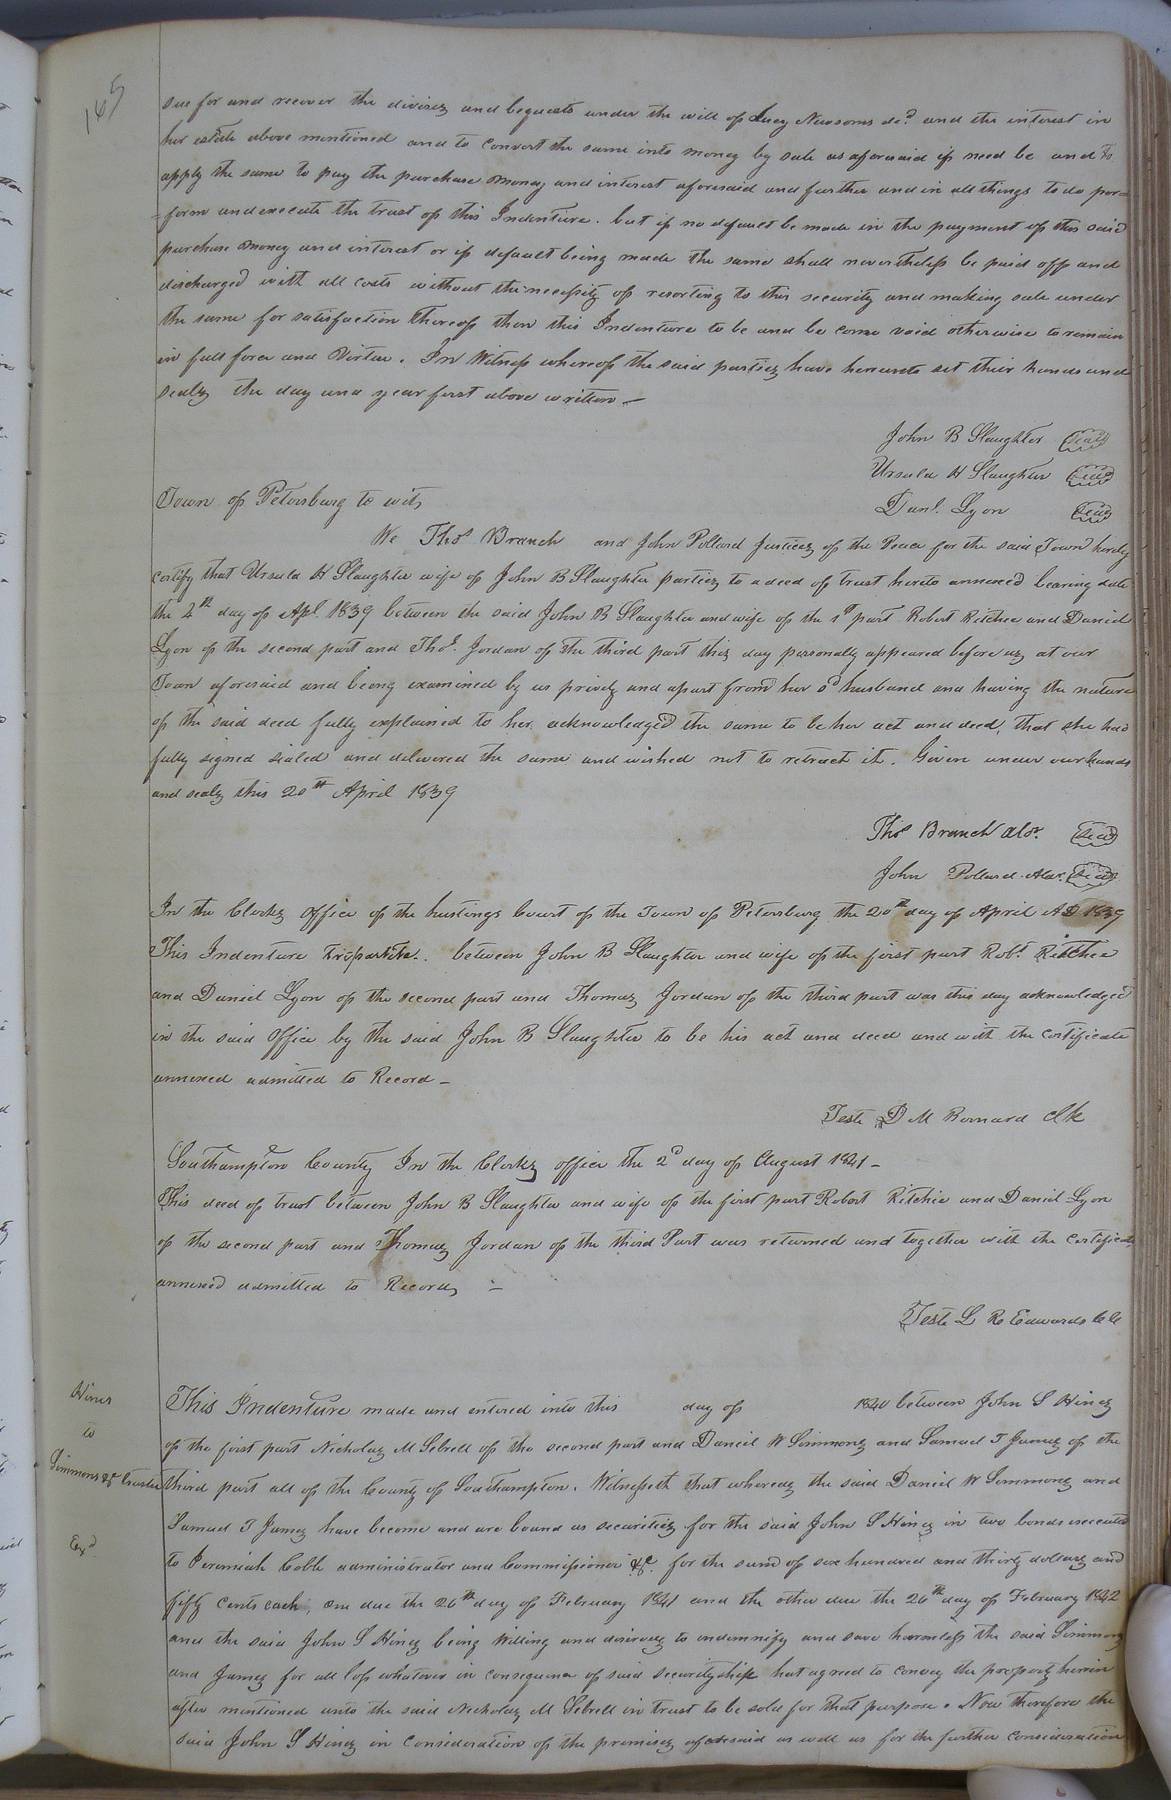 165
sue for and recover the devises and bequests under the will of Lucy Newsoms decd and the interest in
her estate above mentioned and to convert the same into money by sale as aforesaid if need be and to
apply the same to pay the purchase money and interest aforesaid and further and in all things to do per=
=form and execute the trust of this Indenture. but if no default be made in the payment of the said
purchase money and interest or if default being made the same shall nevertheless be paid off and
discharged with all costs without the necessity of resorting to this security and making sale under
the same for satisfaction thereof then this Indenture to be and be come void otherwise to remain
in full force and Virtue. In Witness whereof the said parties have hereunto set their hands and
seals the day and year first above written —
John B Slaughter Seal
Ursula H Slaughter Seal
Danl. Lyon Seal
Town of Petersburg to wit,
We Thos Branch and John Pollard Justices of the Peace for the said Town hereby
certify that Ursula H Slaughter wife of John B Slaughter parties to a deed of trust hereto annexed bearing date
the 4th day of Apl. 1839 between the said John B Slaughter and wife of the 1st part Robert Ritchie and Daniel
Lyon of the second part and Thos. Jordan of the third part this day personally appeared before us at our
Town aforesaid and being examined by us privily and apart from her sd husband and having the nature
of the said deed fully explained to her, acknowledged the same to be her act and deed, that she had
fully signed sealed and delivered the same and wished not to retract it. Given under our hands
and seals this 20th April 1839
Thos Branch Aldr. Seal
John Pollard Alder. Seal
In the Clerks office of the hustings Court of the Town of Petersburg the 20th day of April AD 1839
This Indenture tripartite. between John B Slaughter and wife of the first part Robt. Ritchie
and Daniel Lyon of the second part and Thomas Jordan of the third part was this day acknowledged
in the said Office by the said John B Slaughter to be his act and deed and with the certificate
annexed admitted to Record —
Teste D M Bernard Clk
Southampton County In the Clerks office the 2d day of August 1841 —
This deed of trust between John B Slaughter and wife of the first part Robert Ritchie and Daniel Lyon
of the second part and Thomas Jordan of the third Part was returned and together with the Certificate
annexed admitted to Record, —
Teste L R Edwards CC
Hines
to
Simmons &c Trustee
Exd
This Indenture made and entered into this day of 1840 between John S Hines
of the first part Nicholas M Sebrell of the second part and Daniel W Simmons and Samuel T James of the
third part all of the County of Southampton. Witnesseth that whereas the said Daniel W Simmons and
Samuel T James have become and are bound as securities for the said John S Hines in two bonds executed
to Jeremiah Cobb administrator and Commissioner &c. for the sum of six hundred and thirty dollars and
fifty cents each, one due the 26th day of February 1841 and the other due the 26th day of February 1842
and the said John S Hines being willing and desirous to indemnify and save harmless the said Simmons
and James for all loss whatever in consequence of said securityship hat agreed to convey the property herein
after mentioned unto the said Nicholas M Sebrell in trust to be sold for that purpose. Now therefore the
said John S Hines in consideration of the premises aforesaid as well as for the further consideration